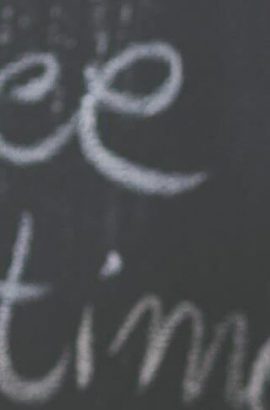 ee
time